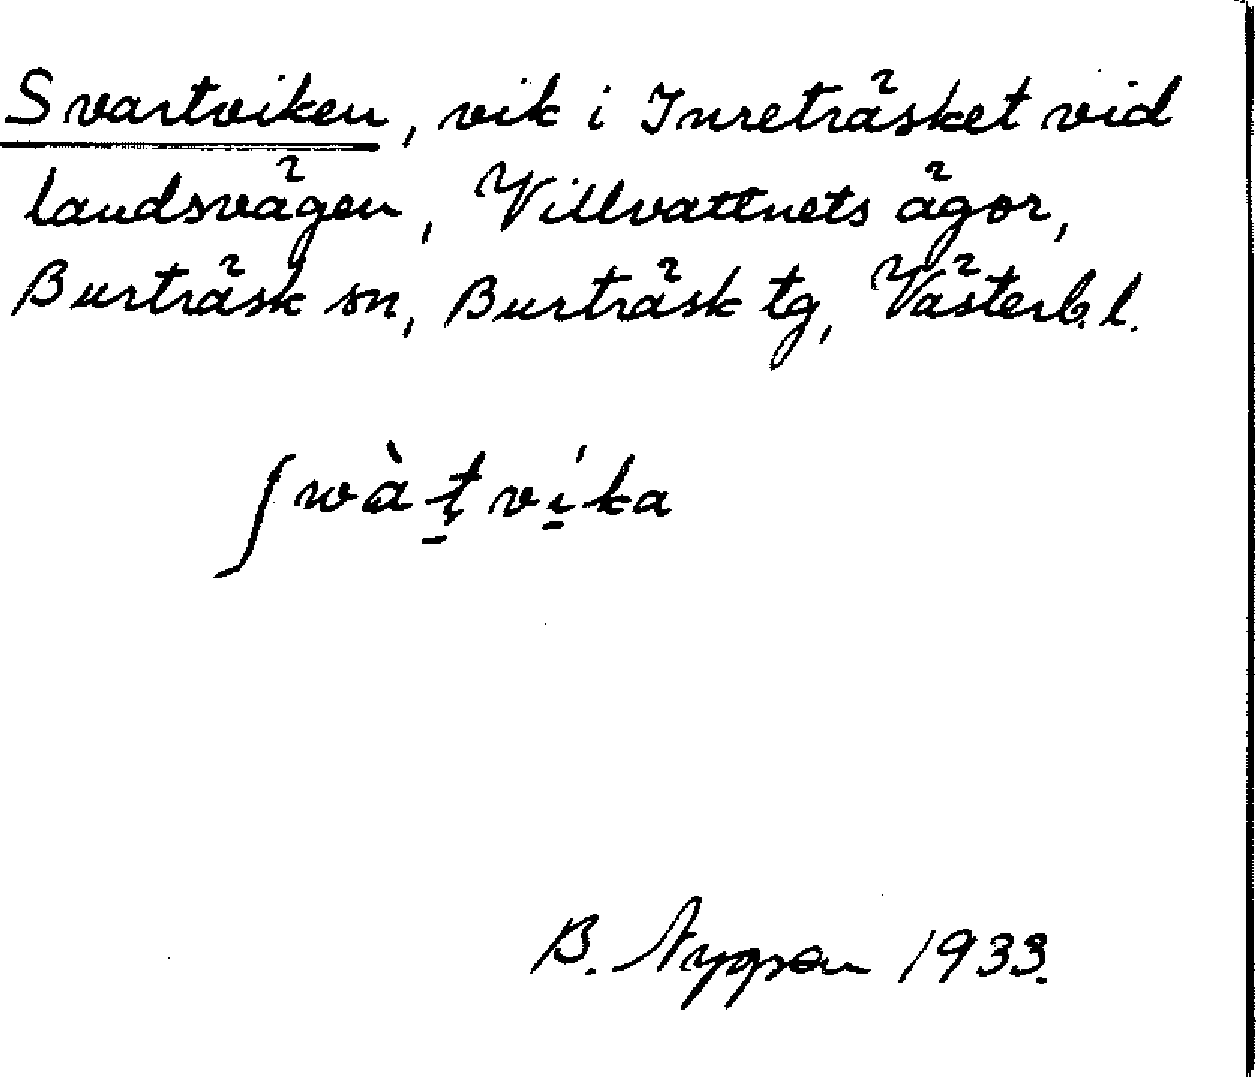 Svartviken, vik i Inreträsket vid
landsvägen, Villvattnets ägor,
Burträsk sn, Burträsk tg, Västerb. l.
ʃwàt̠ví̠ka
B. Nygren 1933.